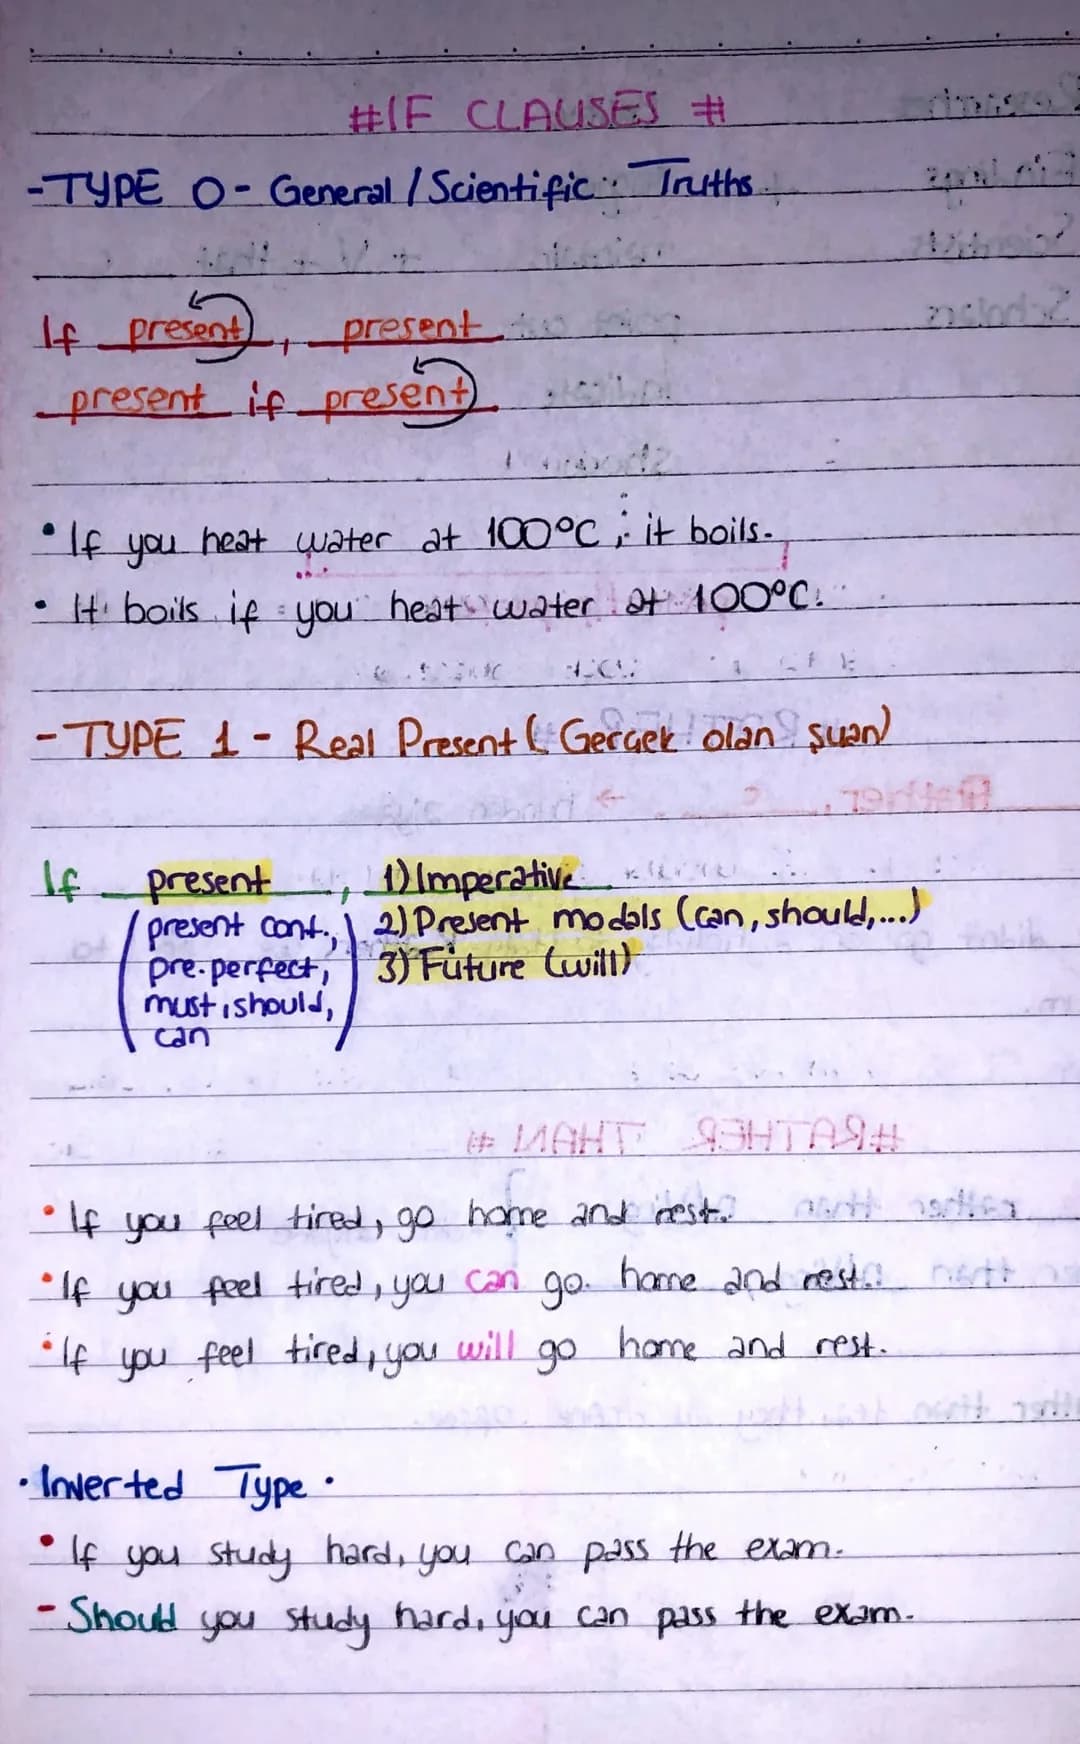 #IF CLAUSES #
-TYPE 0- General / Scientific Truths
If present, present
present if present
• If you heat water at 100°C, it boils.
• It boils if you heat water at 100°C.
-TYPE 1- Real Present (Gerçek olan şuan)
If present, 1) Imperative
(present cont., 2) Present modals (can, should,...)
pre.perfect, 3) Future (will)
must, should,
can)
• If you feel tired, go home and rest.
• If you feel tired, you can go home and rest.
• If you feel tired, you will go home and rest.
• Inverted Type •
• If you study hard, you can pass the exam.
- Should you study hard, you can pass the exam.